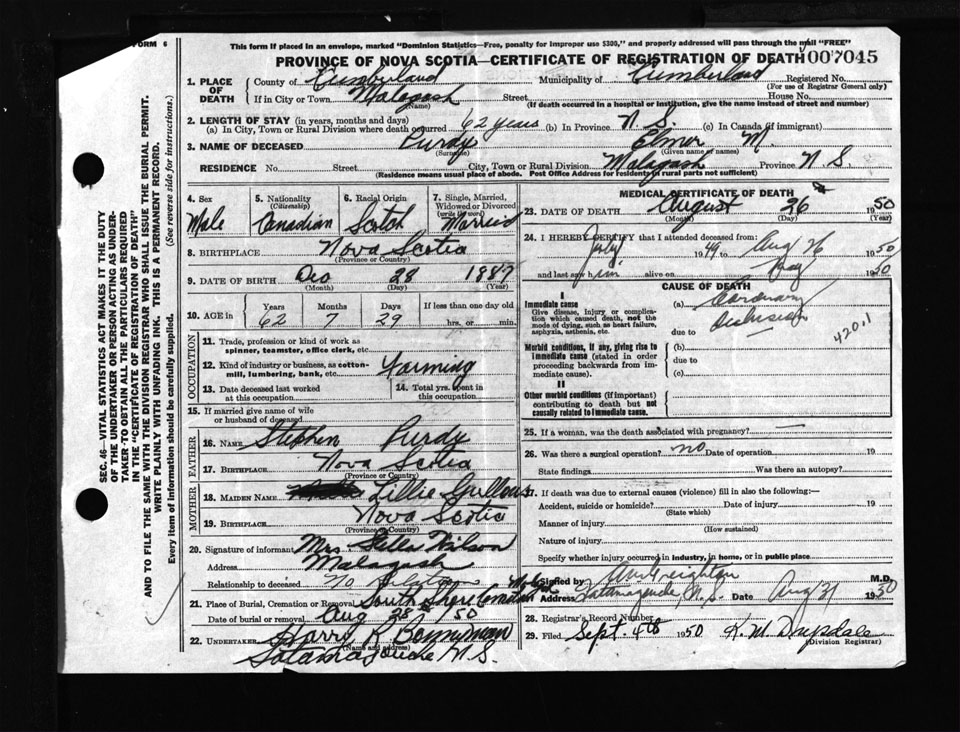 FORM 6
This form if placed in an envelope, marked "Dominion Statistics—Free, penalty for improper use $300," and properly addressed will pass through the mail "FREE"
PROVINCE OF NOVA SCOTIA—CERTIFICATE OF REGISTRATION OF DEATH 007045
SEC. 46— VITAL STATISTICS ACT MAKES IT THE DUTY
OF THE UNDERTAKER OR PERSON ACTING AS UNDER-
TAKER -TO OBTAIN ALL THE PARTICULARS REQUIRED
IN THE "CERTIFICATE OF REGISTRATION OF DEATH"
AND TO FILE THE SAME WITH THE DIVISION REGISTRAR WHO SHALL ISSUE THE BURIAL PERMIT.
WRITE PLAINLY WITH UNFADING INK. THIS IS A PERMANENT RECORD.
Every item of information should be carefully supplied. (See reverse side for instructions.)
1. PLACE OF DEATH County of Cumberland Municipality of Cumberland Registered No.
(For use of Registrar General only)
If in City or Town Malagash Street House No.
(Name) (If death occurred in a hospital or institution, give the name instead of street and number)
2. LENGTH OF STAY (in years, months and days)
(a) In City, Town or Rural Division where death occurred 62 years (b) In Province N. S. (c) In Canada (if immigrant)
3. NAME OF DECEASED Purdy Elmer M.
(Surname) (Given name or names)
RESIDENCE No. Street City, Town or Rural Division Malagash Province N. S.
(Residence means usual place of abode. Post Office Address for residents in rural parts not sufficient)
4. Sex
Male
5. Nationality
(Citizenship)
Canadian
6. Racial Origin
Scotch
7. Single, Married,
Widowed or Divorced
(write the word)
Married
8. BIRTHPLACE Nova Scotia
(Province or Country)
9. DATE OF BIRTH Dec 28 1887
(Month) (Day) (Year)
10. AGE in Years Months Days If less than one day old
62 7 29 hrs. or min.
OCCUPATION
11. Trade, profession or kind of work as
spinner, teamster, office clerk, etc.
12. Kind of industry or business, as cotton-
mill, lumbering, bank, etc. Farming
13. Date deceased last worked
at this occupation
14. Total yrs. spent in
this occupation
15. If married give name of wife
or husband of deceased
FATHER
16. NAME Stephen Purdy
17. BIRTHPLACE Nova Scotia
(Province or Country)
MOTHER
18. MAIDEN NAME Lillie
19. BIRTHPLACE Nova Scotia
(Province or Country)
20. Signature of informant Mrs. Stella Wilson
Address Malagash
Relationship to deceased No
21. Place of Burial, Cremation or Removal South Shore Cemetery
Date of burial or removal Aug 28 1950
22. UNDERTAKER Harry R Bonnyman
(Name and address)
Tatamagouche N.S.
MEDICAL CERTIFICATE OF DEATH
23. DATE OF DEATH August 26 1950
(Month) (Day) (Year)
24. I HEREBY CERTIFY that I attended deceased from:
July 1949 to Aug 26 1950
and last saw him alive on 1950
CAUSE OF DEATH
I
Immediate cause
Give disease, injury or compli-
cation which caused death, not the
mode of dying, such as heart failure,
asphyxia, asthenia, etc.
(a) Coronary
Occlusion
due to
420.1
Morbid conditions, if any, giving rise to
immediate cause (stated in order
proceeding backwards from im-
mediate cause).
(b)
due to
(c)
II
Other morbid conditions (if important)
contributing to death but not
causally related to immediate cause.
25. If a woman, was the death associated with pregnancy? —
26. Was there a surgical operation? no Date of operation 19
State findings Was there an autopsy?
27. If death was due to external causes (violence) fill in also the following:—
Accident, suicide or homicide? Date of injury 19
(State which)
Manner of injury
(How sustained)
Nature of injury
Specify whether injury occurred in industry, in home, or in public place
Signed by Creighton M.D.
Address Tatamagouche, N.S. Date Aug 31 1950
28. Registrar's Record Number
29. Filed Sept. 4th 1950 K. M. Drysdale
(Division Registrar)